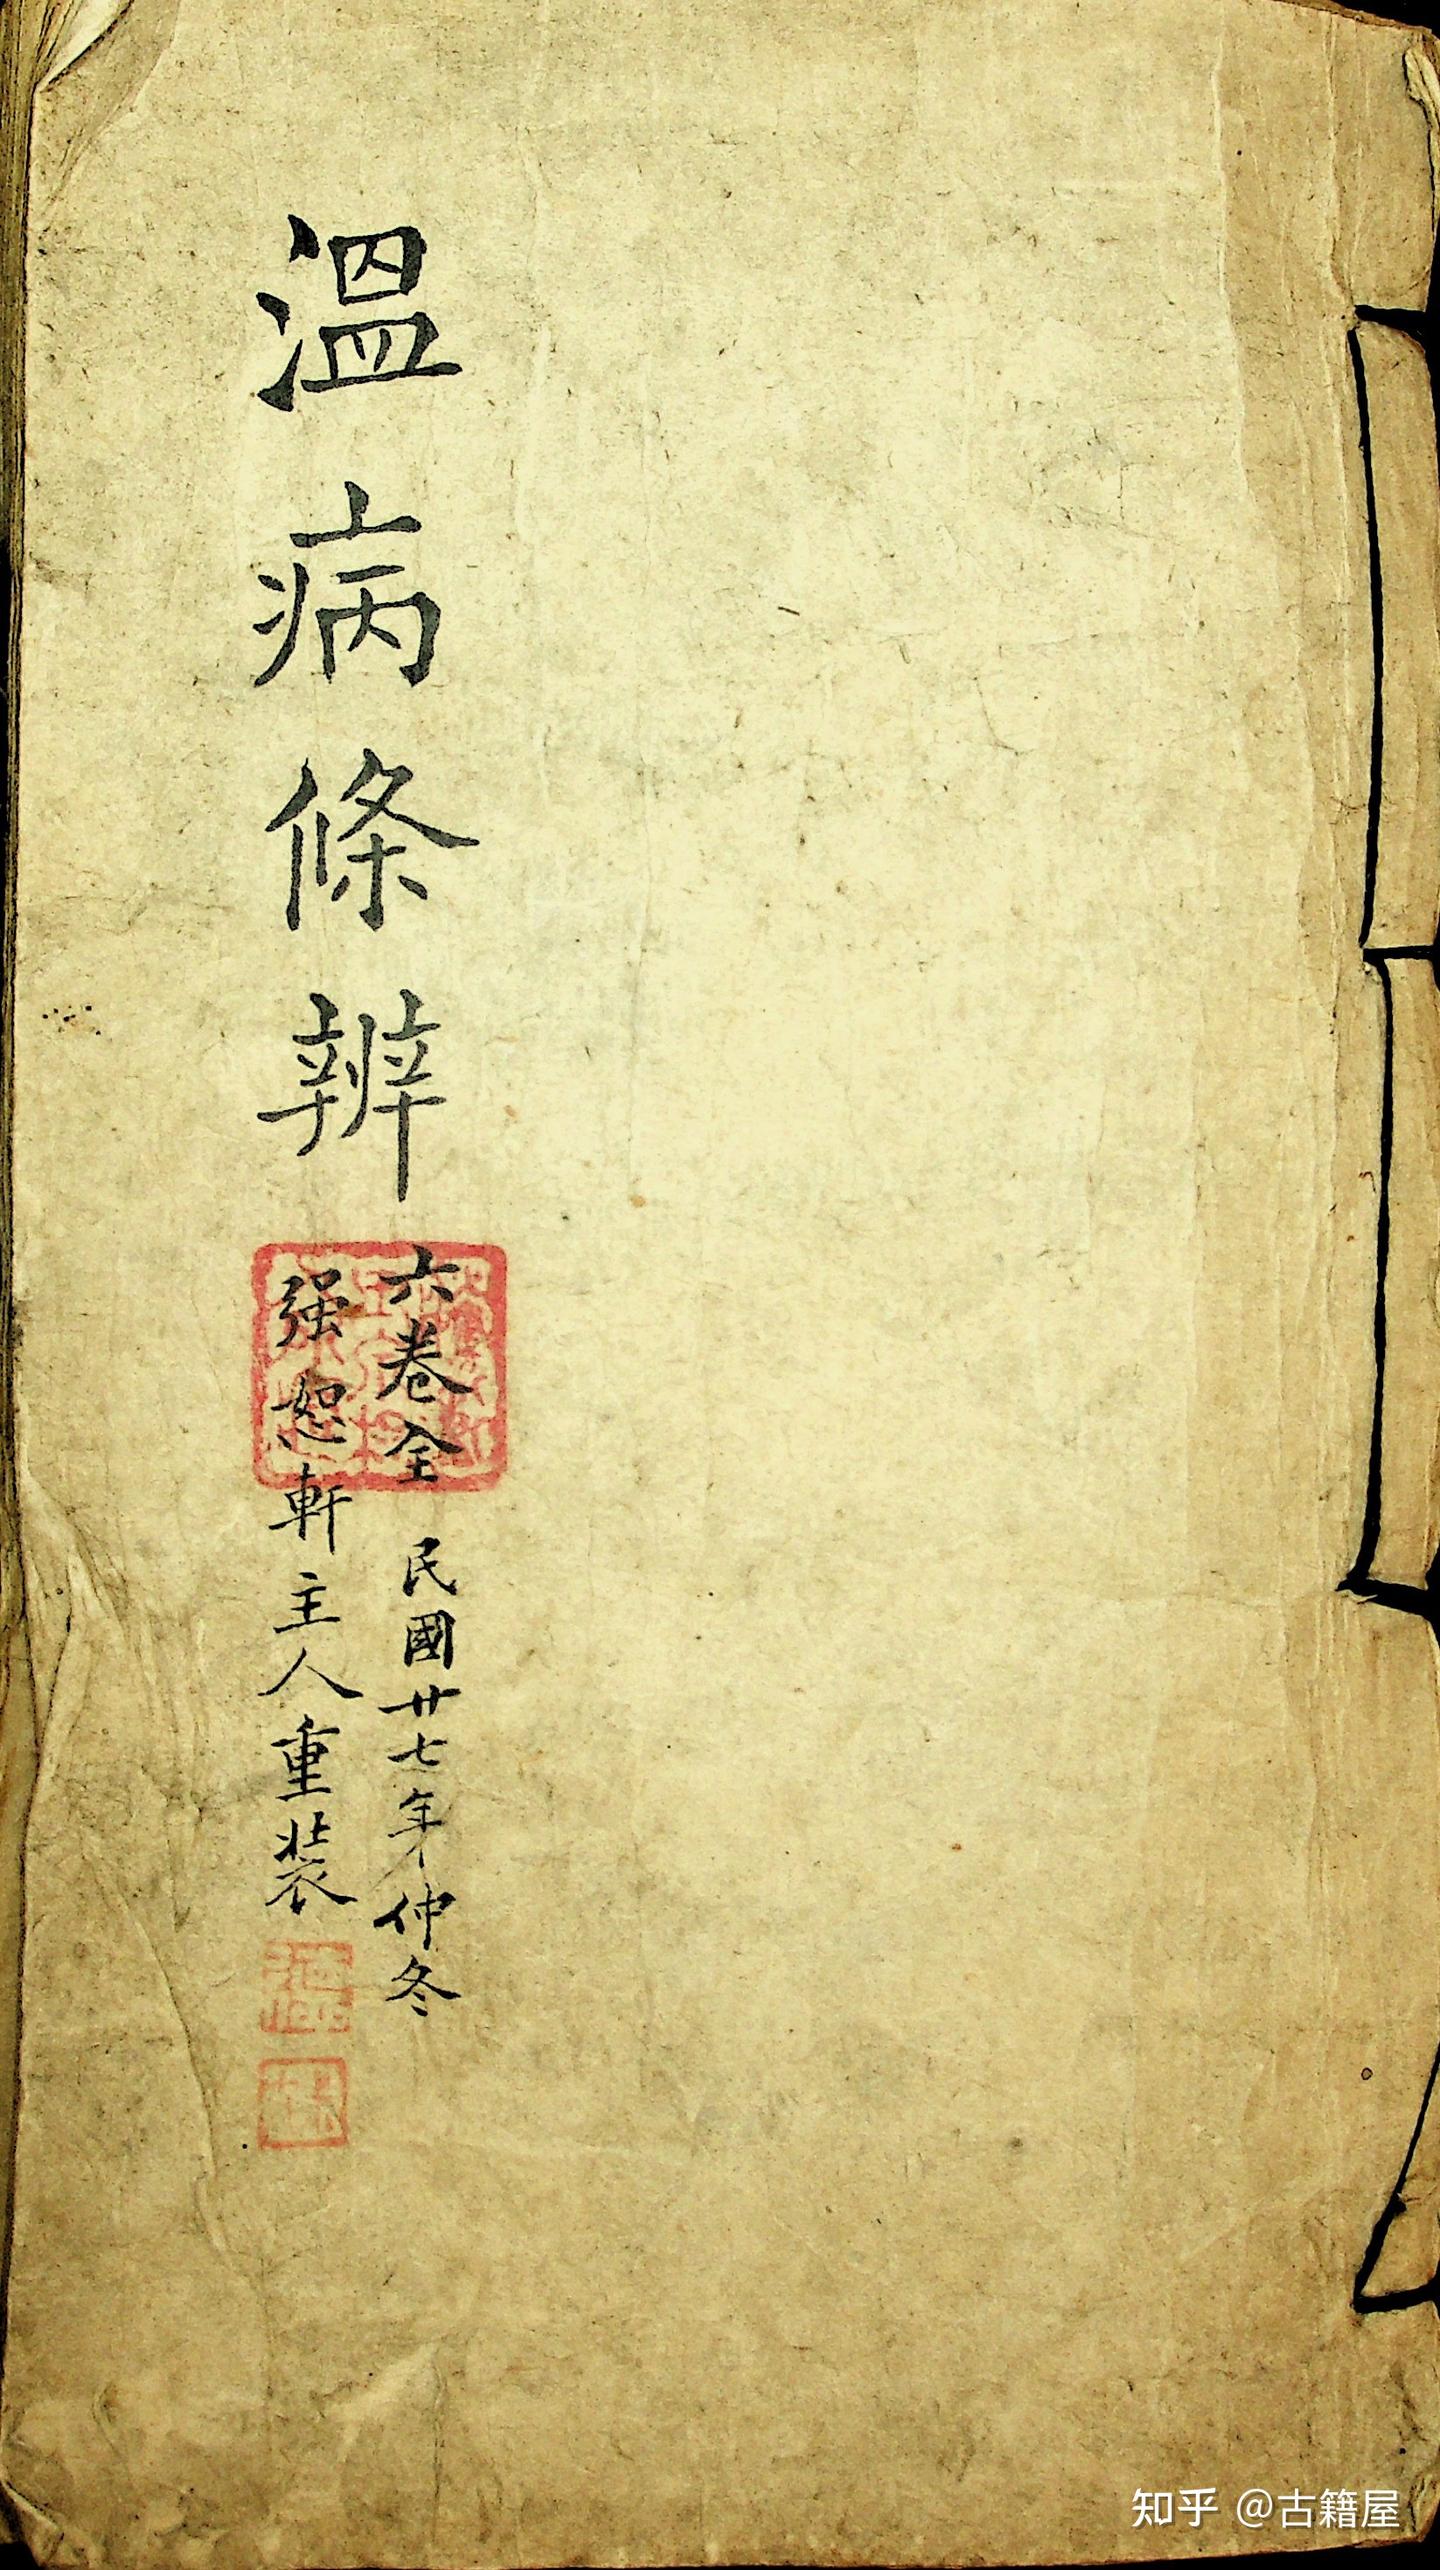 溫病條辨
六卷全 民國廿七年仲冬
强恕軒主人重装
知乎 @古籍屋